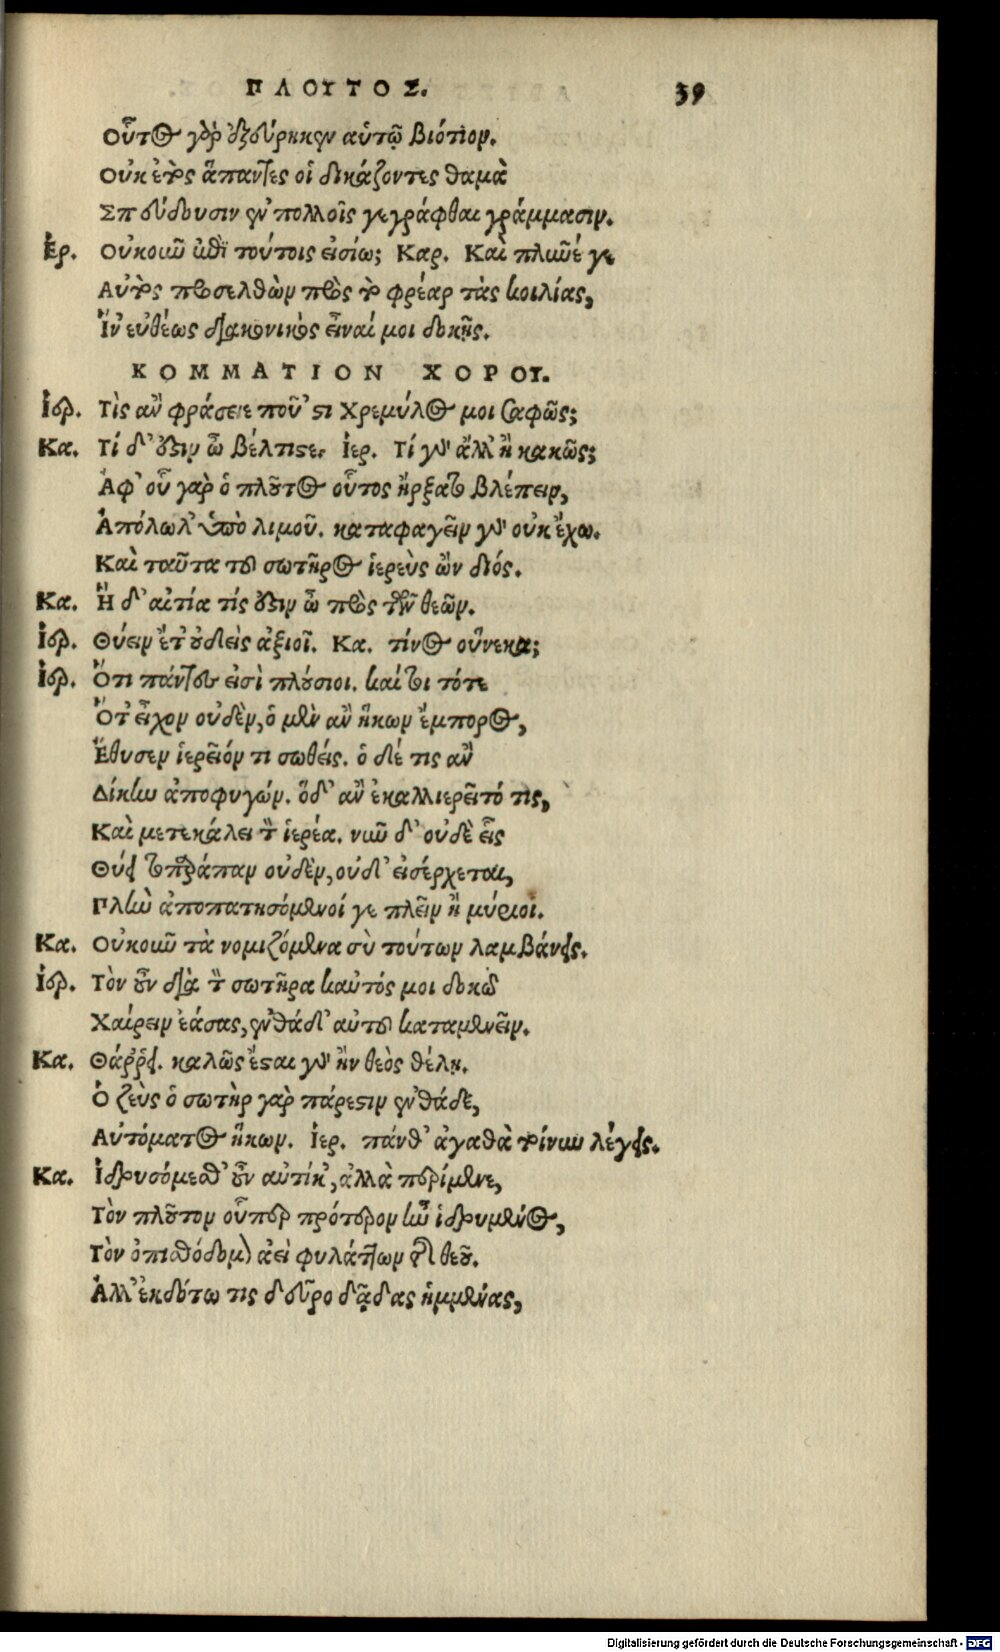 ΠΛΟΥΤΟΣ. 39
Οὗτος γὰρ ἐξεύρηκεν αὑτῷ βιότιον.
Οὐκ ἐτὸς ἅπαντες οἱ δικάζοντες θαμὰ
Σπεύδουσιν ἐν πολλοῖς γεγράφθαι γράμμασιν.
Ἑρ. Οὐκοῦν ἐπὶ τούτοις εἰσίω; Καρ. Καὶ πλῦνέ γε
Αὐτὸς προσελθὼν πρὸς τὸ φρέαρ τὰς κοιλίας,
Ἵν' εὐθέως διακονικὸς εἶναί μοι δοκῇς.
ΚΟΜΜΑΤΙΟΝ ΧΟΡΟΥ.
Ἱερ. Τὶς ἂν φράσειε ποῦ 'στι Χρεμύλος μοι σαφῶς;
Κα. Τί δ' ἔστιν ὦ βέλτιστε. Ἱερ. Τί γὰρ ἀλλ' ἢ κακῶς;
Ἀφ' οὗ γὰρ ὁ πλοῦτος οὗτος ἤρξατο βλέπειν,
Ἀπόλωλ' ὑπὸ λιμοῦ. καταφαγεῖν γὰρ οὐκ ἔχω.
Καὶ ταῦτα τοῦ σωτῆρος ἱερεὺς ὢν διός.
Κα. Ἡ δ' αἰτία τίς ἔστιν ὦ πρὸς τῶν θεῶν.
Ἱερ. Θύειν ἔτ' οὐδεὶς ἀξιοῖ. Κα. τίνος οὕνεκα;
Ἱερ. Ὅτι πάντες εἰσὶ πλούσιοι. καί τοι τότε
Ὅτ' εἶχον οὐδὲν, ὁ μὲν ἂν ἥκων ἔμπορος,
Ἔθυσεν ἱερεῖόν τι σωθείς. ὁ δέ τις ἂν
Δίκην ἀποφυγών. ὅδ' ἂν ἐκαλλιερεῖτό τις,
Καὶ μετεκάλει τὸν ἱερέα. νῦν δ' οὐδὲ εἷς
Θύει τοπαράπαν οὐδὲν, οὐδ' εἰσέρχεται,
Πλὴν ἀποπατησόμενοί γε πλεῖν ἢ μύριοι.
Κα. Οὐκοῦν τὰ νομιζόμενα σὺ τούτων λαμβάνεις.
Ἱερ. Τὸν οὖν δία τὸν σωτῆρα καὐτός μοι δοκῶ
Χαίρειν ἐάσας, ἐνθάδ' αὐτοῦ καταμενεῖν.
Κα. Θάῤῥει. καλῶς ἔσται γὰρ ἢν θεὸς θέλῃ.
Ὁ ζεὺς ὁ σωτὴρ γὰρ πάρεστιν ἐνθάδε,
Αὐτόματος ἥκων. Ἱερ. πάνθ' ἀγαθὰ τοίνυν λέγεις.
Κα. Ἱδρυσόμεθ' οὖν αὐτίκ', ἀλλὰ περίμενε,
Τὸν πλοῦτον οὗπερ πρότερον ἦν ἱδρυμένος,
Τὸν ὀπισθόδομον ἀεὶ φυλάττων τῆς θεοῦ.
Ἀλλ' ἐκδότω τις δεῦρο δᾷδας ἡμμένας,
Digitalisierung gefördert durch die Deutsche Forschungsgemeinschaft - DFG